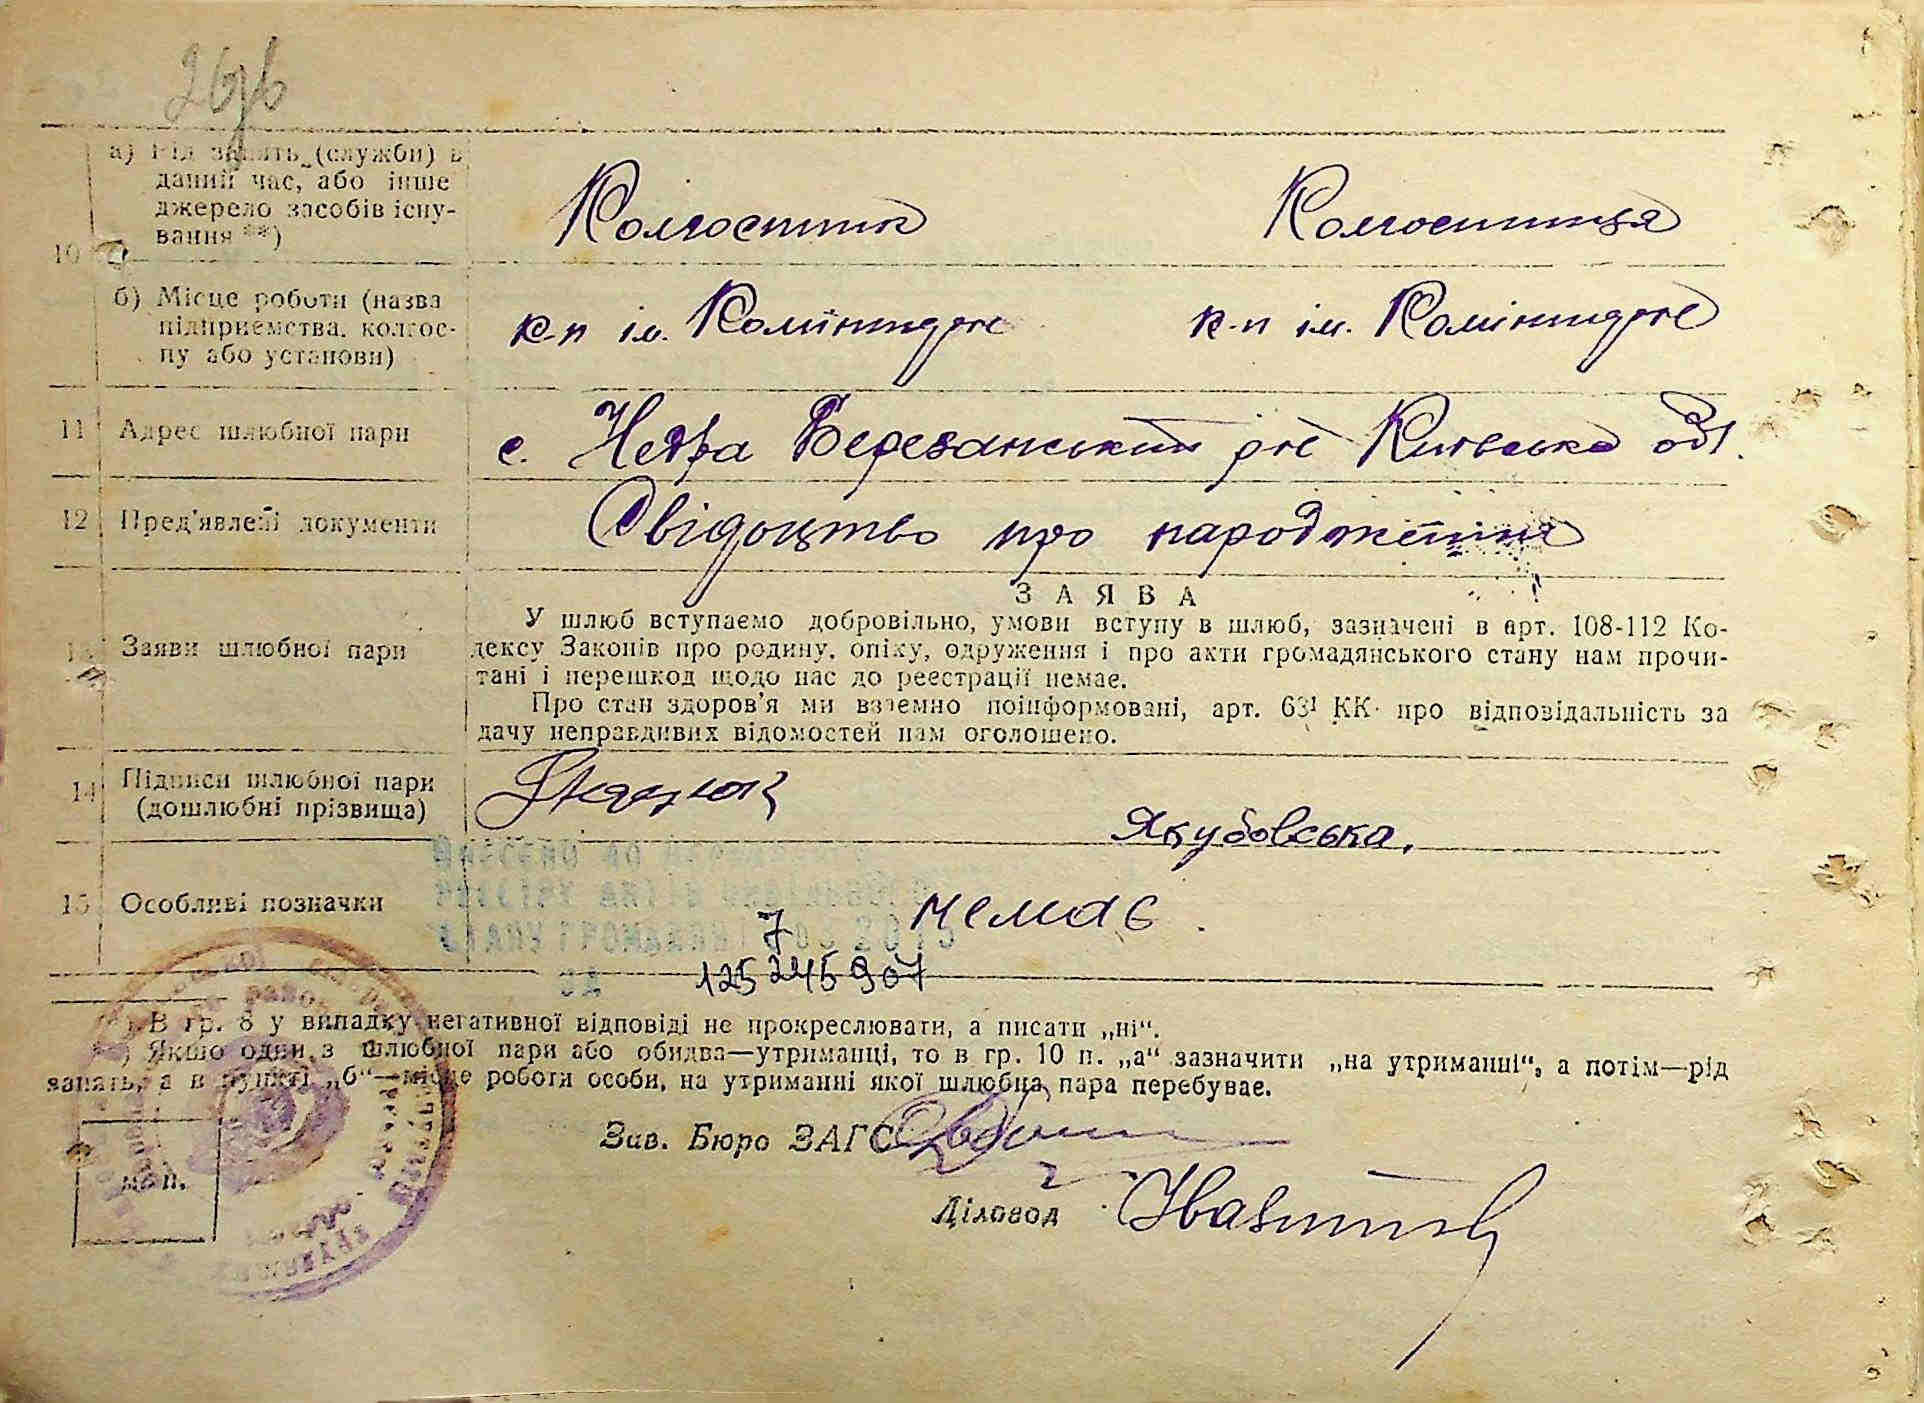 а) Рід занять (служби) в
даний час, або інше
джерело засобів існу-
вання **)
Колгоспник Колгоспниця
10
б) Місце роботи (назва
підприємства, колгос-
пу або установи)
к-п ім. Комінтерне к-п ім. Комінтерне
11 Адрес шлюбної пари
с. Недра Березанський р-н Київська обл.
12 Пред'явлені документи
Свідоцтво про народження
ЗАЯВА
13 Заяви шлюбної пари
У шлюб вступаємо добровільно, умови вступу в шлюб, зазначені в арт. 108-112 Ко-
дексу Законів про родину, опіку, одруження і про акти громадянського стану нам прочи-
тані і перешкод щодо нас до реєстрації немає.
Про стан здоров'я ми взаємно поінформовані, арт. 63¹ КК про відповідальність за
дачу неправдивих відомостей нам оголошено.
14 Підписи шлюбної пари
(дошлюбні прізвища)
Якубовська.
15 Особливі позначки
немає.
7
125245907
*) В гр. 8 у випадку негативної відповіді не прокреслювати, а писати „ні“.
**) Якщо один з шлюбної пари або обидва—утриманці, то в гр. 10 п. „а“ зазначити „на утриманні“, а потім—рід
занять, а в пункті „б“—місце роботи особи, на утриманні якої шлюбна пара перебуває.
Зав. Бюро ЗАГС
Діловод
м. п.